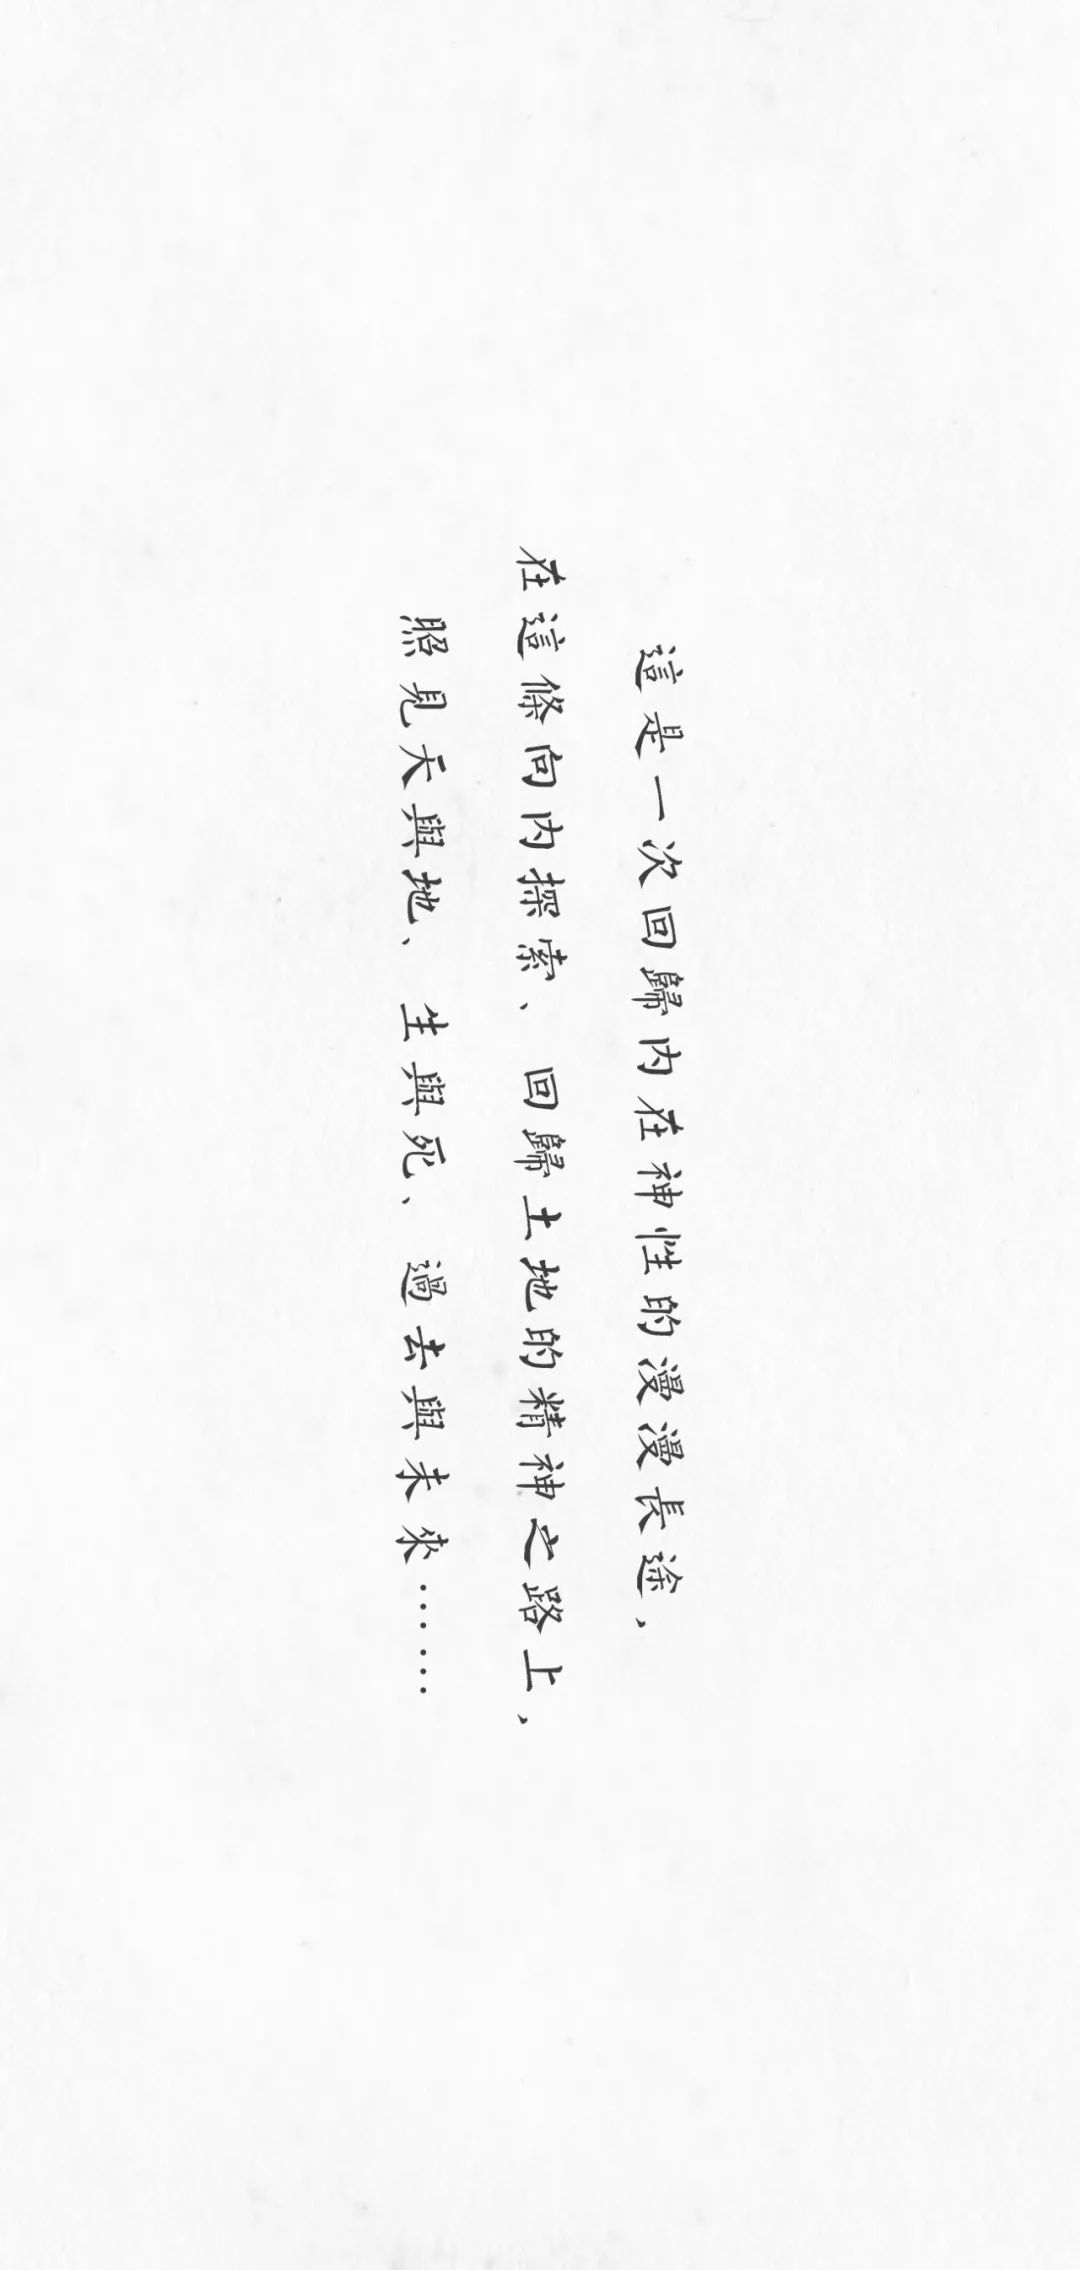 這是一次回歸內在神性的漫漫長途，
在這條向內探索、回歸土地的精神之路上，
照見天與地、生與死、過去與未來……